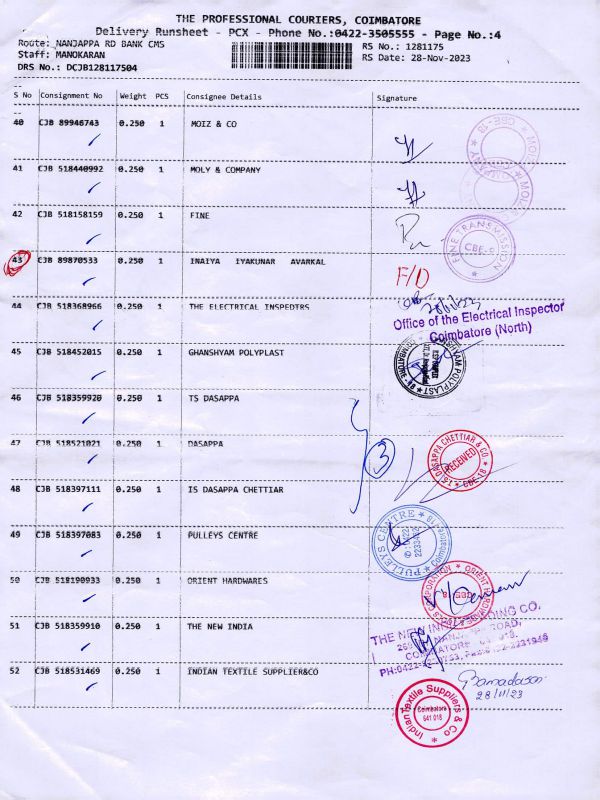 THE PROFESSIONAL COURIERS, COIMBATORE
Delivery Runsheet - PCX - Phone No.:0422-3505555 - Page No.:4
Route: NANJAPPA RD BANK CMS RS No.: 1281175
Staff: MANOKARAN RS Date: 28-Nov-2023
DRS No.: DCJB128117504
S No Consignment No Weight PCS Consignee Details Signature
40 CJB 89946743 0.250 1 MOIZ & CO
41 CJB 518440992 0.250 1 MOLY & COMPANY
42 CJB 518158159 0.250 1 FINE
FINE TRANSMISSION
CBE-9
43 CJB 89870533 0.250 1 INAIYA IYAKUNAR AVARKAL
F/D
44 CJB 518368966 0.250 1 THE ELECTRICAL INSPEDTRS
Office of the Electrical Inspector
Coimbatore (North)
45 CJB 518452015 0.250 1 GHANSHYAM POLYPLAST
46 CJB 518359920 0.250 1 TS DASAPPA
3
47 CJB 518521021 0.250 1 DASAPPA
T.S. DASAPPA CHETTIAR & CO.
RECEIVED
CBE-18
48 CJB 518397111 0.250 1 IS DASAPPA CHETTIAR
49 CJB 518397083 0.250 1 PULLEYS CENTRE
PULLEYS CENTRE
Coimbatore-18
50 CJB 518190933 0.250 1 ORIENT HARDWARES
51 CJB 518359910 0.250 1 THE NEW INDIA
52 CJB 518531469 0.250 1 INDIAN TEXTILE SUPPLIER&CO
28/11/23
Indian Textile Suppliers & Co
Coimbatore
641 018